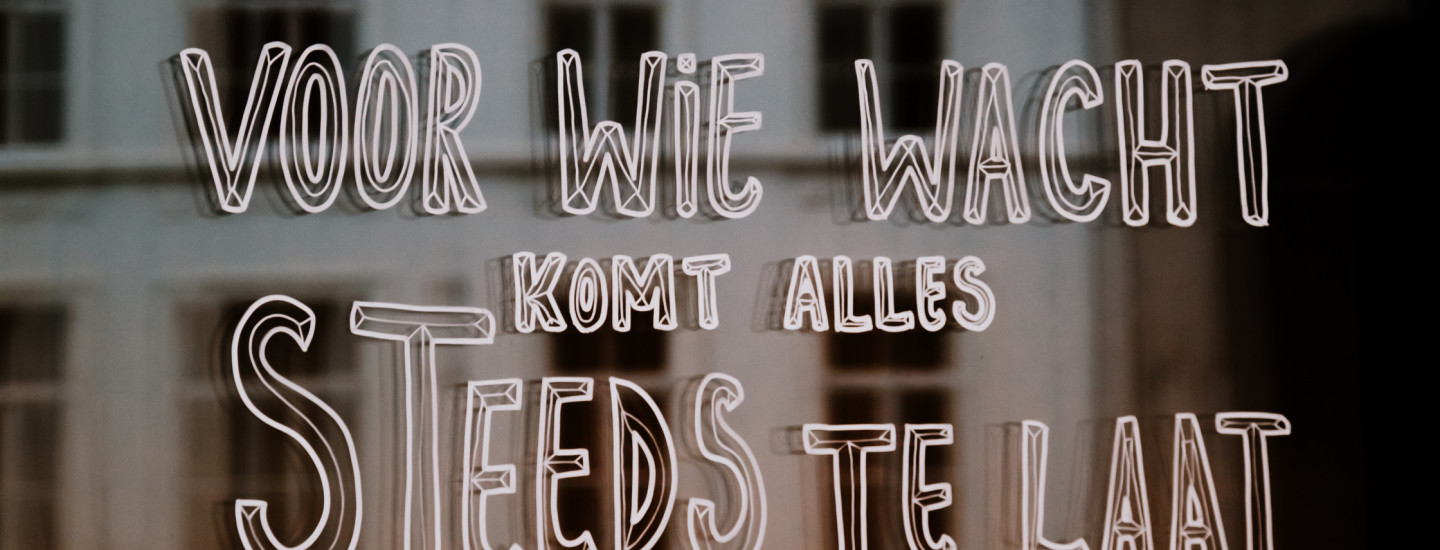 VOOR WIE WACHT
KOMT ALLES
STEEDS TE LAAT